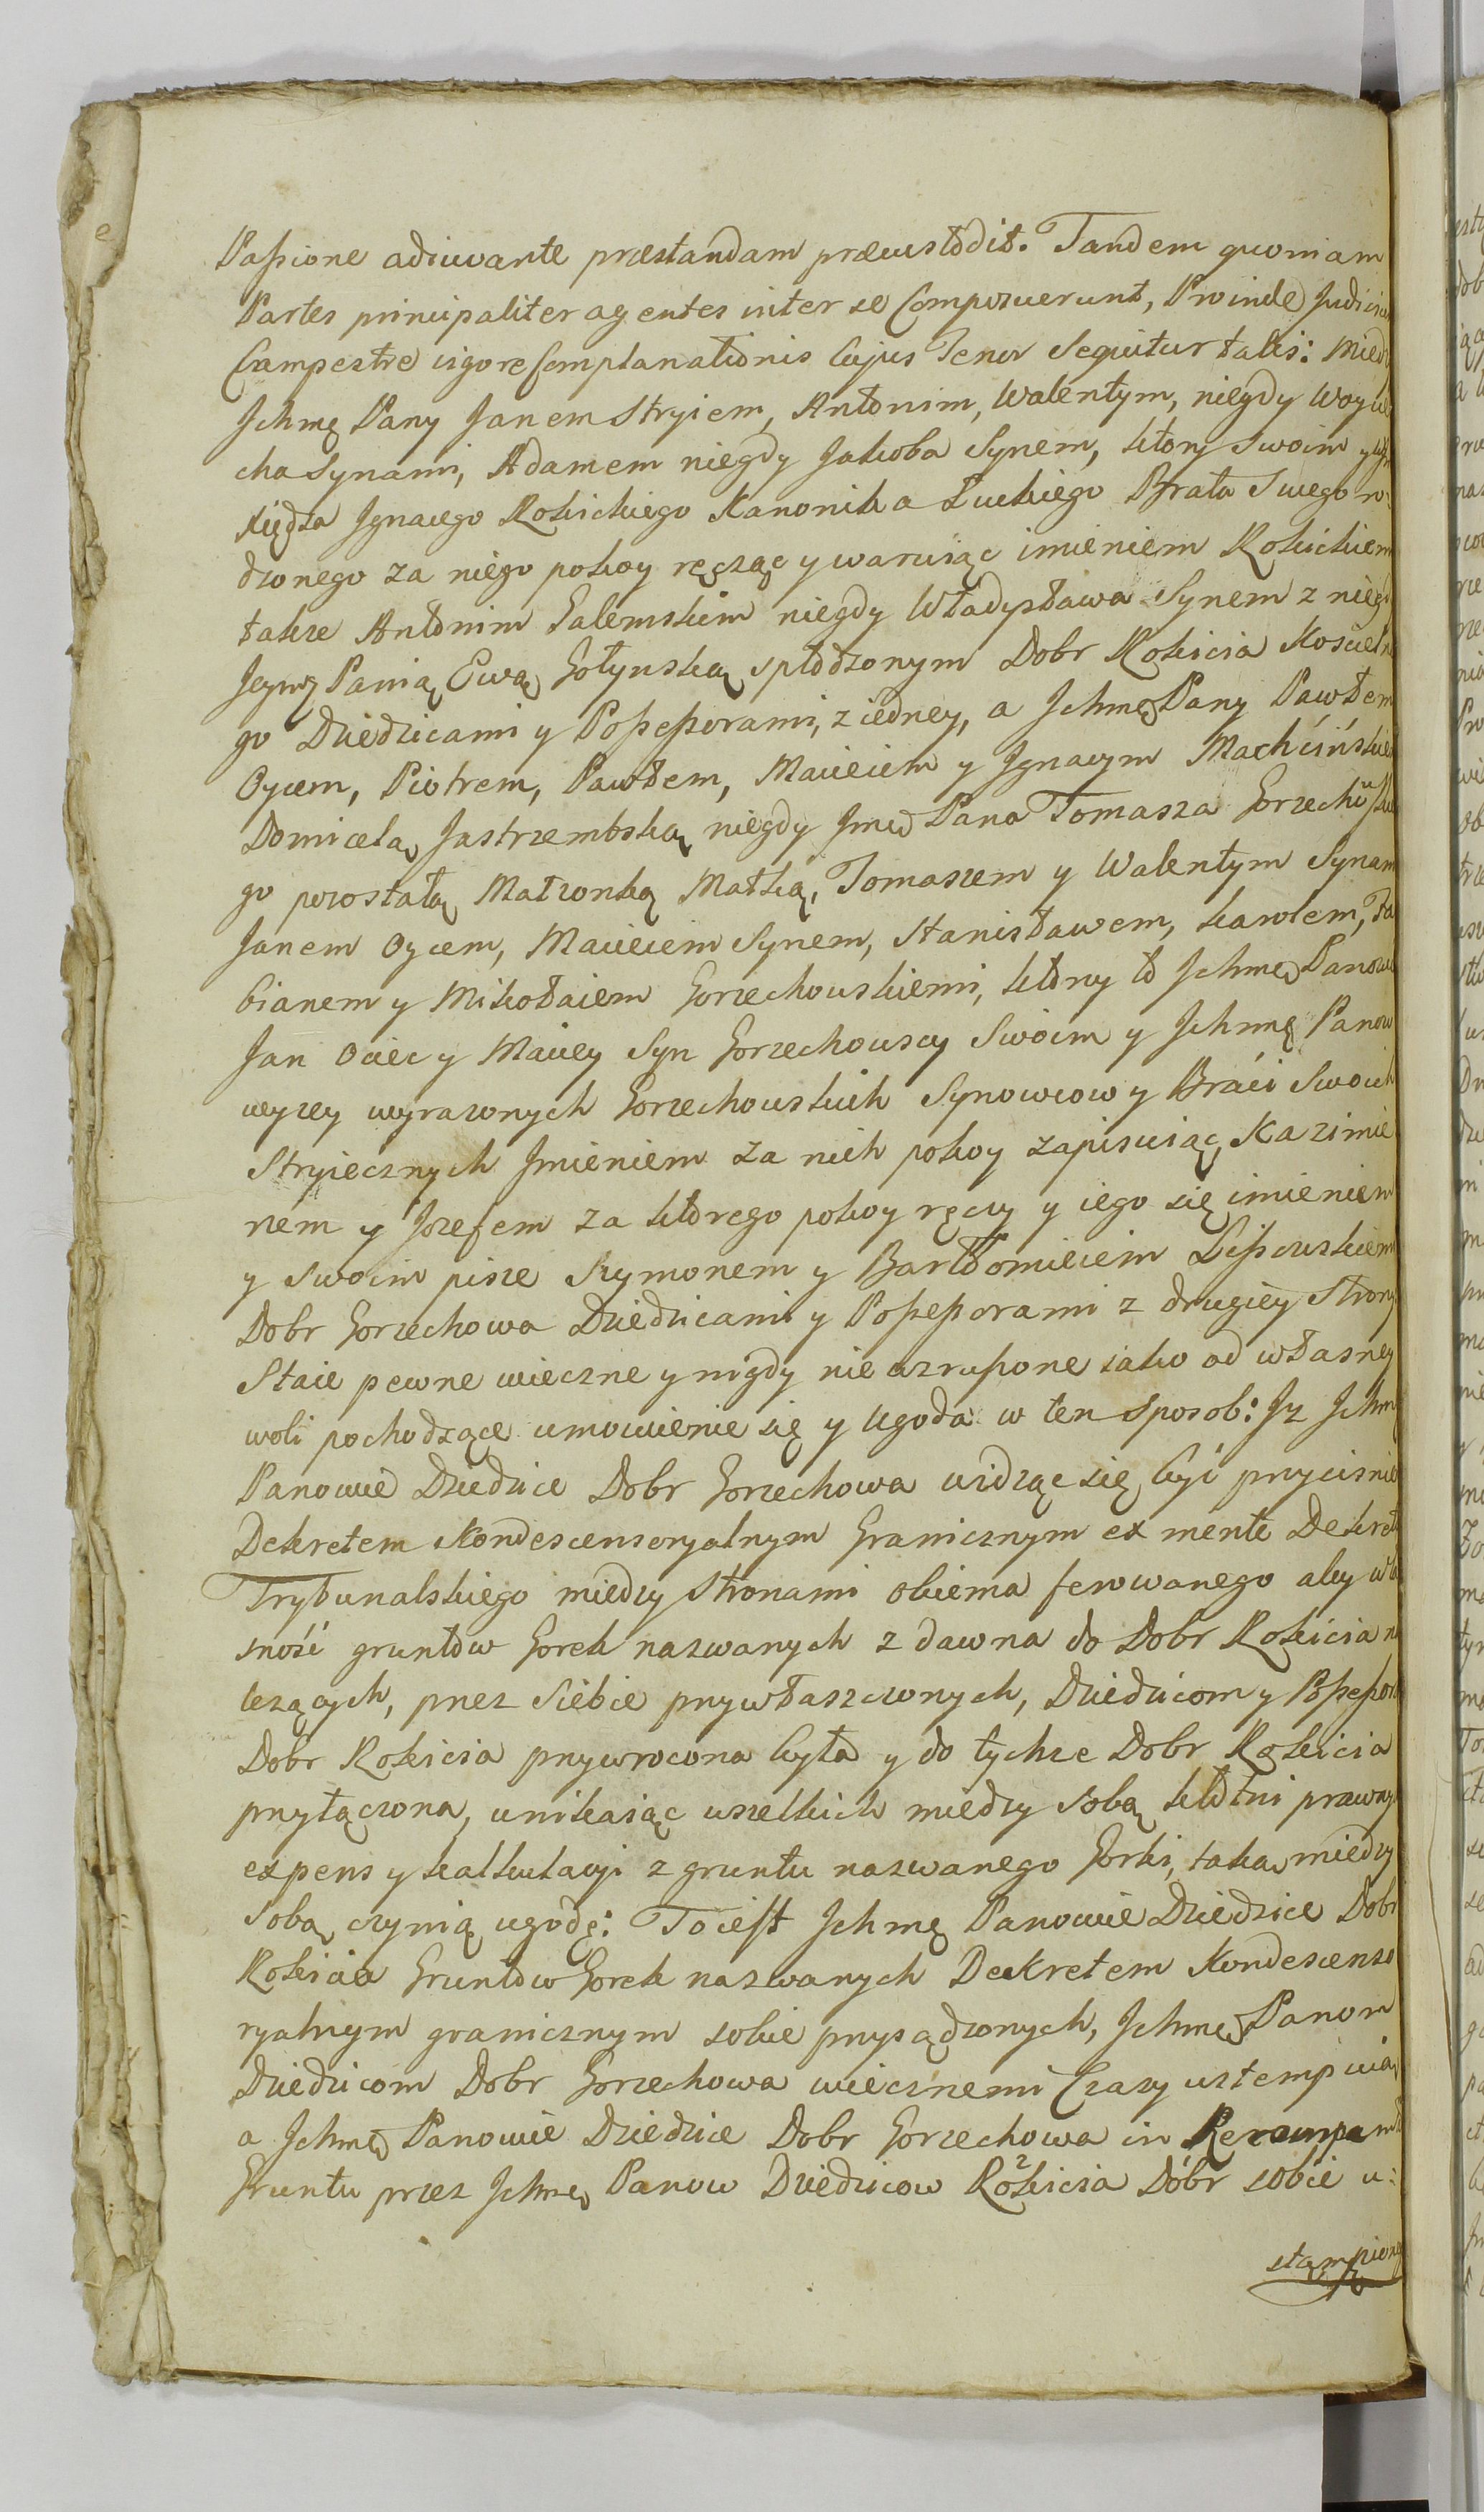 Passione adiuvante præstandam præcustodit. Tandem quoniam
Partes principaliter agentes inter se Composuerunt, Proinde Judicium
Campestre vigore Complanationis Cujus Tenor Sequitur talis: Między
Jchmę Pany Janem Stryiem, Antonim, Walentym, niegdy Woycie
cha Synami, Adamem niegdy Jakoba Synem, ktory Swoim y
Xiędza Jgnacego Rokickiego Kanonika Łuckiego Brata Swego ro:
dzonego za niego pokoy ręcząc y waruiąc imieniem Rokickiem
także Antonim Salemskim niegdy Władysława Synem z niegdy
Jeymę Panią Ewą Gołynską spłodzonym Dobr Rokicia Koscielne
go Dziedzicami y Possessorami, z iedney, a Jchmę Pany Pawłem
Oycem, Piotrem, Pawłem, Macieiem y Jgnacym Machcińskiemi
Domicelą Jastrzembską niegdy Jmę Pana Tomasza Gorzechowskie
go pozostałą Małżonką Matką, Tomaszem y Walentym Synami
Janem Oycem, Macieiem Synem, Stanisławem, karolem, Fa
bianem y Mikołaiem Gorzechowskiemi, ktorzy to Jchmę Panowie
Jan Ociec y Maciey Syn Gorzechowscy Swoim y Jchmę Panow
wyzey wyrazonych Gorzechowskich Synowcow y Braci Swoich
Stryiecznych Jmieniem za nich pokoy zapisuiąc, Kazimie
rzem y Jozefem za ktorego pokoy ręczy y iego się imieniem
y Swoim pisze Szymonem y Bartłomieiem Lissowskiem
Dobr Gorzechowa Dziedzicami y Possessorami z drugiey Strony
Staie pewne wieczne y nigdy nie wzrupone iako od własney
woli pochodzące umowienie się y Ugoda w ten Sposob: Jz Jchmę
Panowie Dziedzice Dobr Gorzechowa widząc się być przycisnie
Dekretem Kondescensoryalnym Granicznym ex mente Dekretu
Trybunalskiego między Stronami obiema ferowanego aby wła
sność gruntow Gorek nazwanych z dawna do Dobr Rokicia na
lezących, przez Siebie przywłaszczonych, Dziedzicom y Possessor
Dobr Rokicia przywrocona była y do tychze Dobr Rokicia
przyłączona, unikaiąc wszelkich między Sobą kłotni prawnych
expens y kalkulacyi z gruntu nazwanego Gorki, taką między
Sobą czynią ugodę: To iest Jchmę Panowie Dziedzice Dobr
Rokicia Gruntow Gorek nazwanych Deekretem Kondescenso
ryalnym granicznym sobie przysądzonych, Jchmę Panom
Dziedzicom Dobr Gorzechowa wiecznemi Czasy ustempuią
a Jchmę Panowie Dziedzice Dobr Gorzechowa in Recompensam
Gruntu przez Jchmę Panow Dziedzicow Rokicia Dóbr sobie u:
stąmpione